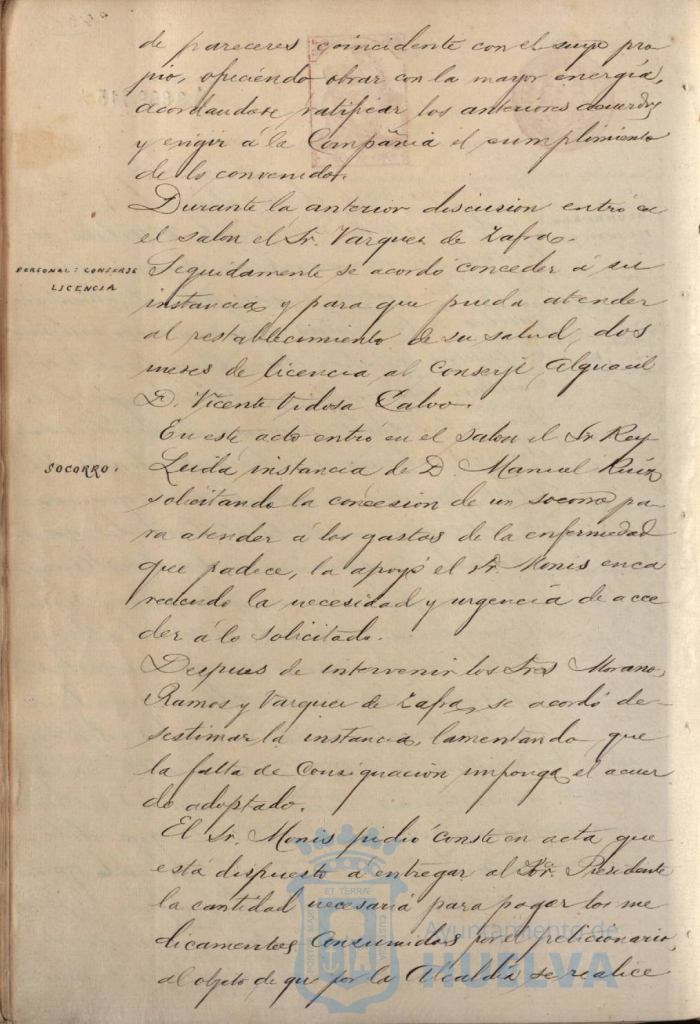 de pareceres coincidente con el suyo pro
pio, ofreciendo obrar con la mayor energía,
acordandose ratificar los anteriores acuerdos
y exigir á la Compañia el cumplimiento
de lo convenido.
Durante la anterior discusion entró en
el salon el Sr. Vazquez de Zafra.
PERSONAL: CONSERJE
LICENCIA
Seguidamente se acordó conceder á su
instancia y para que pueda atender
al restablecimiento de su salud, dos
meses de licencia al Conserje Alguacil
D. Vicente Vidosa Calvo.
En este acto entró en el salon el Sr Rey
SOCORRO.
Leida instancia de D. Manuel Ruiz
solicitando la concesion de un socorro pa
ra atender á los gastos de la enfermedad
que padece, la apoyó el Sr. Monis enca
reciendo la necesidad y urgencia de acce
der á lo solicitado.
Despues de intervenir los Sres Morano,
Ramos y Vazquez de Zafra, se acordó de-
sestimar la instancia, lamentando que
la falta de consignación imponga el acuer
do adoptado.
El Sr. Monis pidió conste en acta que
está dispuesto a entregar al Sr. Presidente
la cantidad necesaria para pagar los me
dicamentos consumidos por el peticionario,
al objeto de que por la Alcaldia se realice
Ayuntamiento de
HUELVA